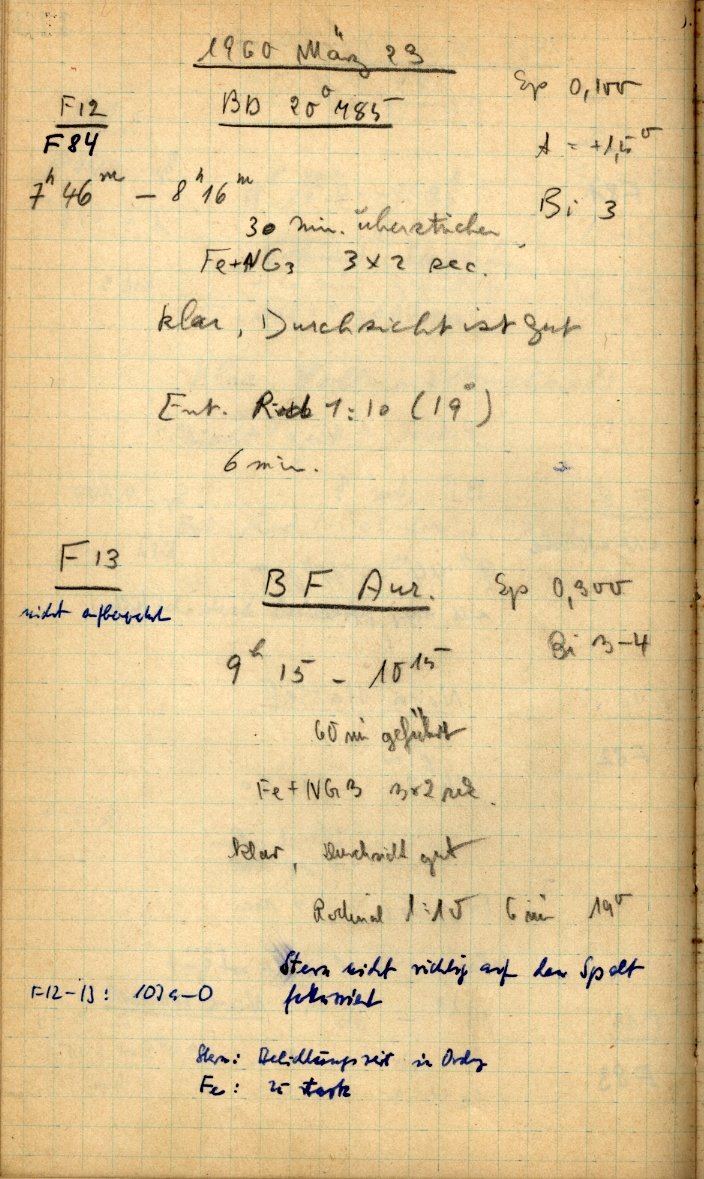 1960 März 23
F12
F84
BD 20° 485
Sp 0,100
A = +1,5°
7ʰ 46ᵐ – 8ʰ 16ᵐ
Bi 3
30 min. überstrichen
Fe+NG3 3x2 sec.
klar, Durchsicht ist gut
Ent. Rod 1:10 (19°)
6 min.
F13
nicht aufbewahrt
BF Aur.
Sp 0,300
Bi 3–4
9ʰ 15 – 10¹⁵
60 min geführt
Fe + NG3 3x2 sek.
klar, Durchsicht gut
Rodinal 1:10 6 min 19°
Stern nicht richtig auf den Spalt
fokussiert
F12–13: 103a–O
Stern: Belichtungszeit in Ordg
Fe: zu stark